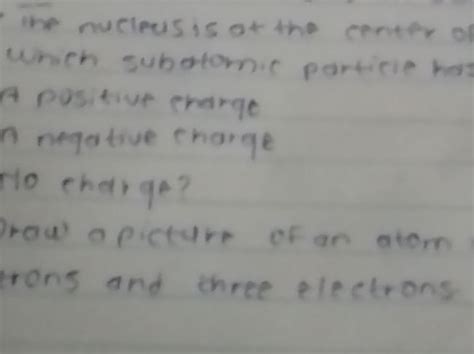 The nucleus is at the center of
which subatomic particle has
A positive charge
A negative charge
No charge?
Draw a picture of an atom
trons and three electrons